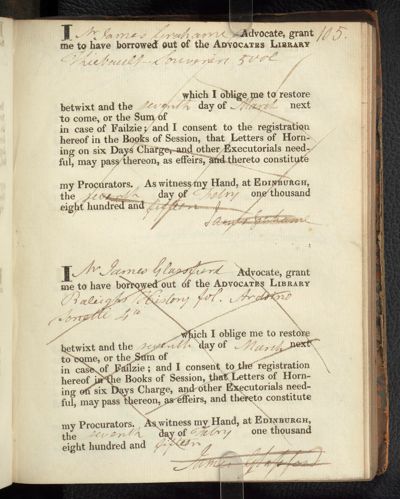 I Mr James Grahame Advocate, grant 105.
me to have borrowed out of the ADVOCATES LIBRARY
Thiebault Souvenirs 5 vol
which I oblige me to restore
betwixt and the seventh day of March next
to come, or the Sum of
in case of Failzie; and I consent to the registration
hereof in the Books of Session, that Letters of Horn-
ing on six Days Charge, and other Executorials need-
ful, may pass thereon, as effeirs, and thereto constitute
my Procurators. As witness my Hand, at EDINBURGH,
the seventh day of Febry one thousand
eight hundred and fifteen
James Grahame
I Mr James Glassford Advocate, grant
me to have borrowed out of the ADVOCATES LIBRARY
Raleighs History fol. Ariosto
4to
which I oblige me to restore
betwixt and the seventh day of March next
to come, or the Sum of
in case of Failzie; and I consent to the registration
hereof in the Books of Session, that Letters of Horn-
ing on six Days Charge, and other Executorials need-
ful, may pass thereon, as effeirs, and thereto constitute
my Procurators. As witness my Hand, at EDINBURGH,
the seventh day of Febry one thousand
eight hundred and fifteen
James Glassford